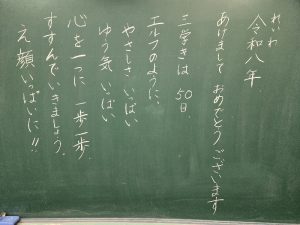 れいわ
令和八年
あけまして おめでとう ございます
三学きは 50日、
エルフのように、
やさしさ いっぱい
ゆう気 いっぱい
心を一つに 一歩一歩、
すすんでいきましょう。
え顔いっぱいに!!